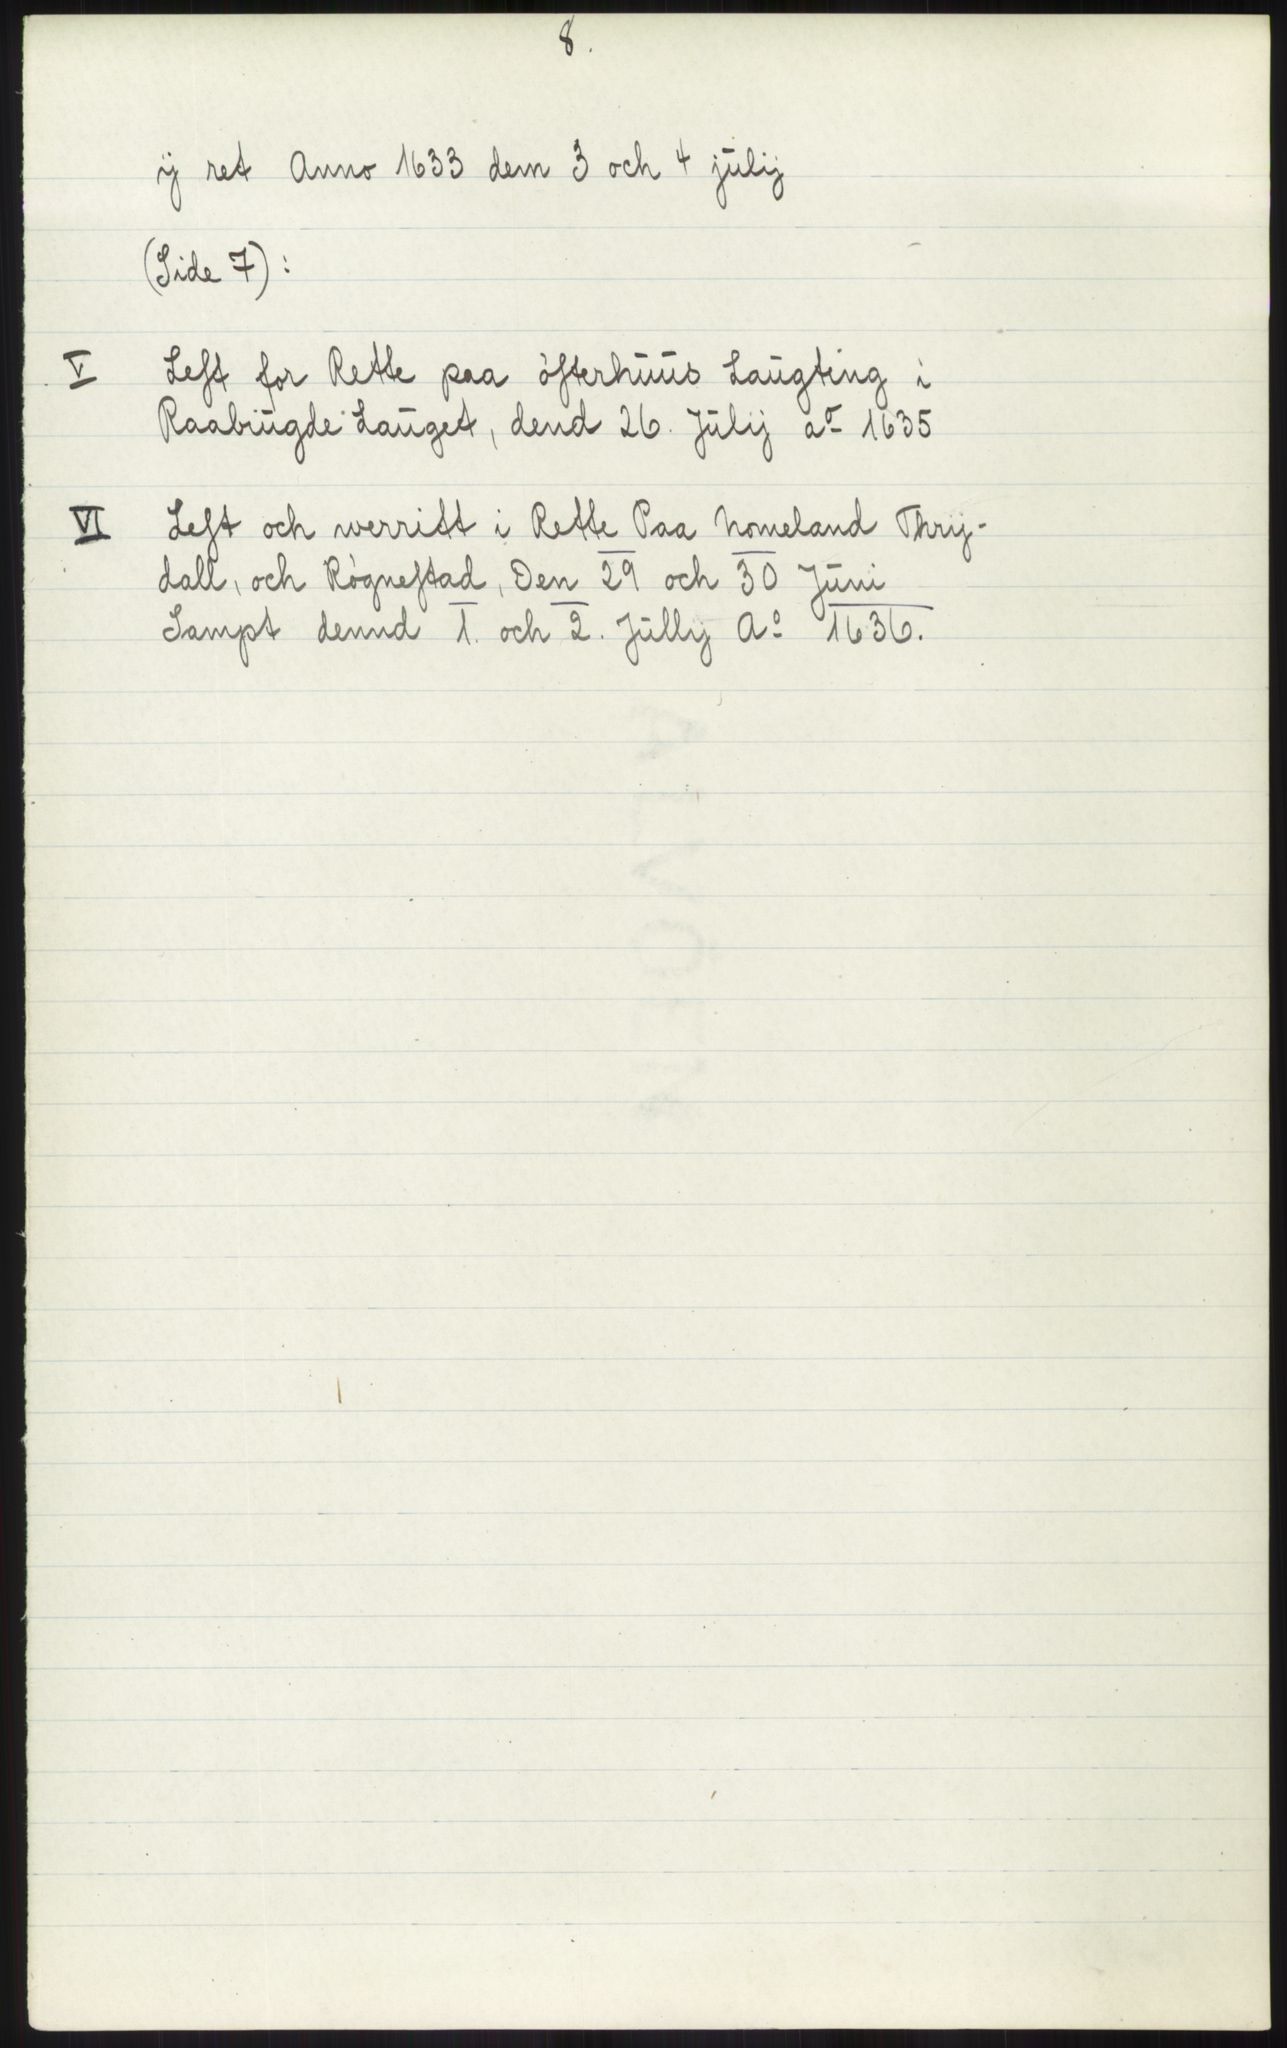 8.
ij ret Anno 1633 dem 3 och 4 julij
(Side 7):
V Lest for Rette paa østerhuus Laugting i
Raabiugde Lauget, dend 26. Julij aº 1635
VI Lest och werritt i Rette Paa homeland Thrij-
dall, och Røgnestad, Den 29 och 30 Juni
Sampt dennd 1. och 2. Jullij Aº 1636.